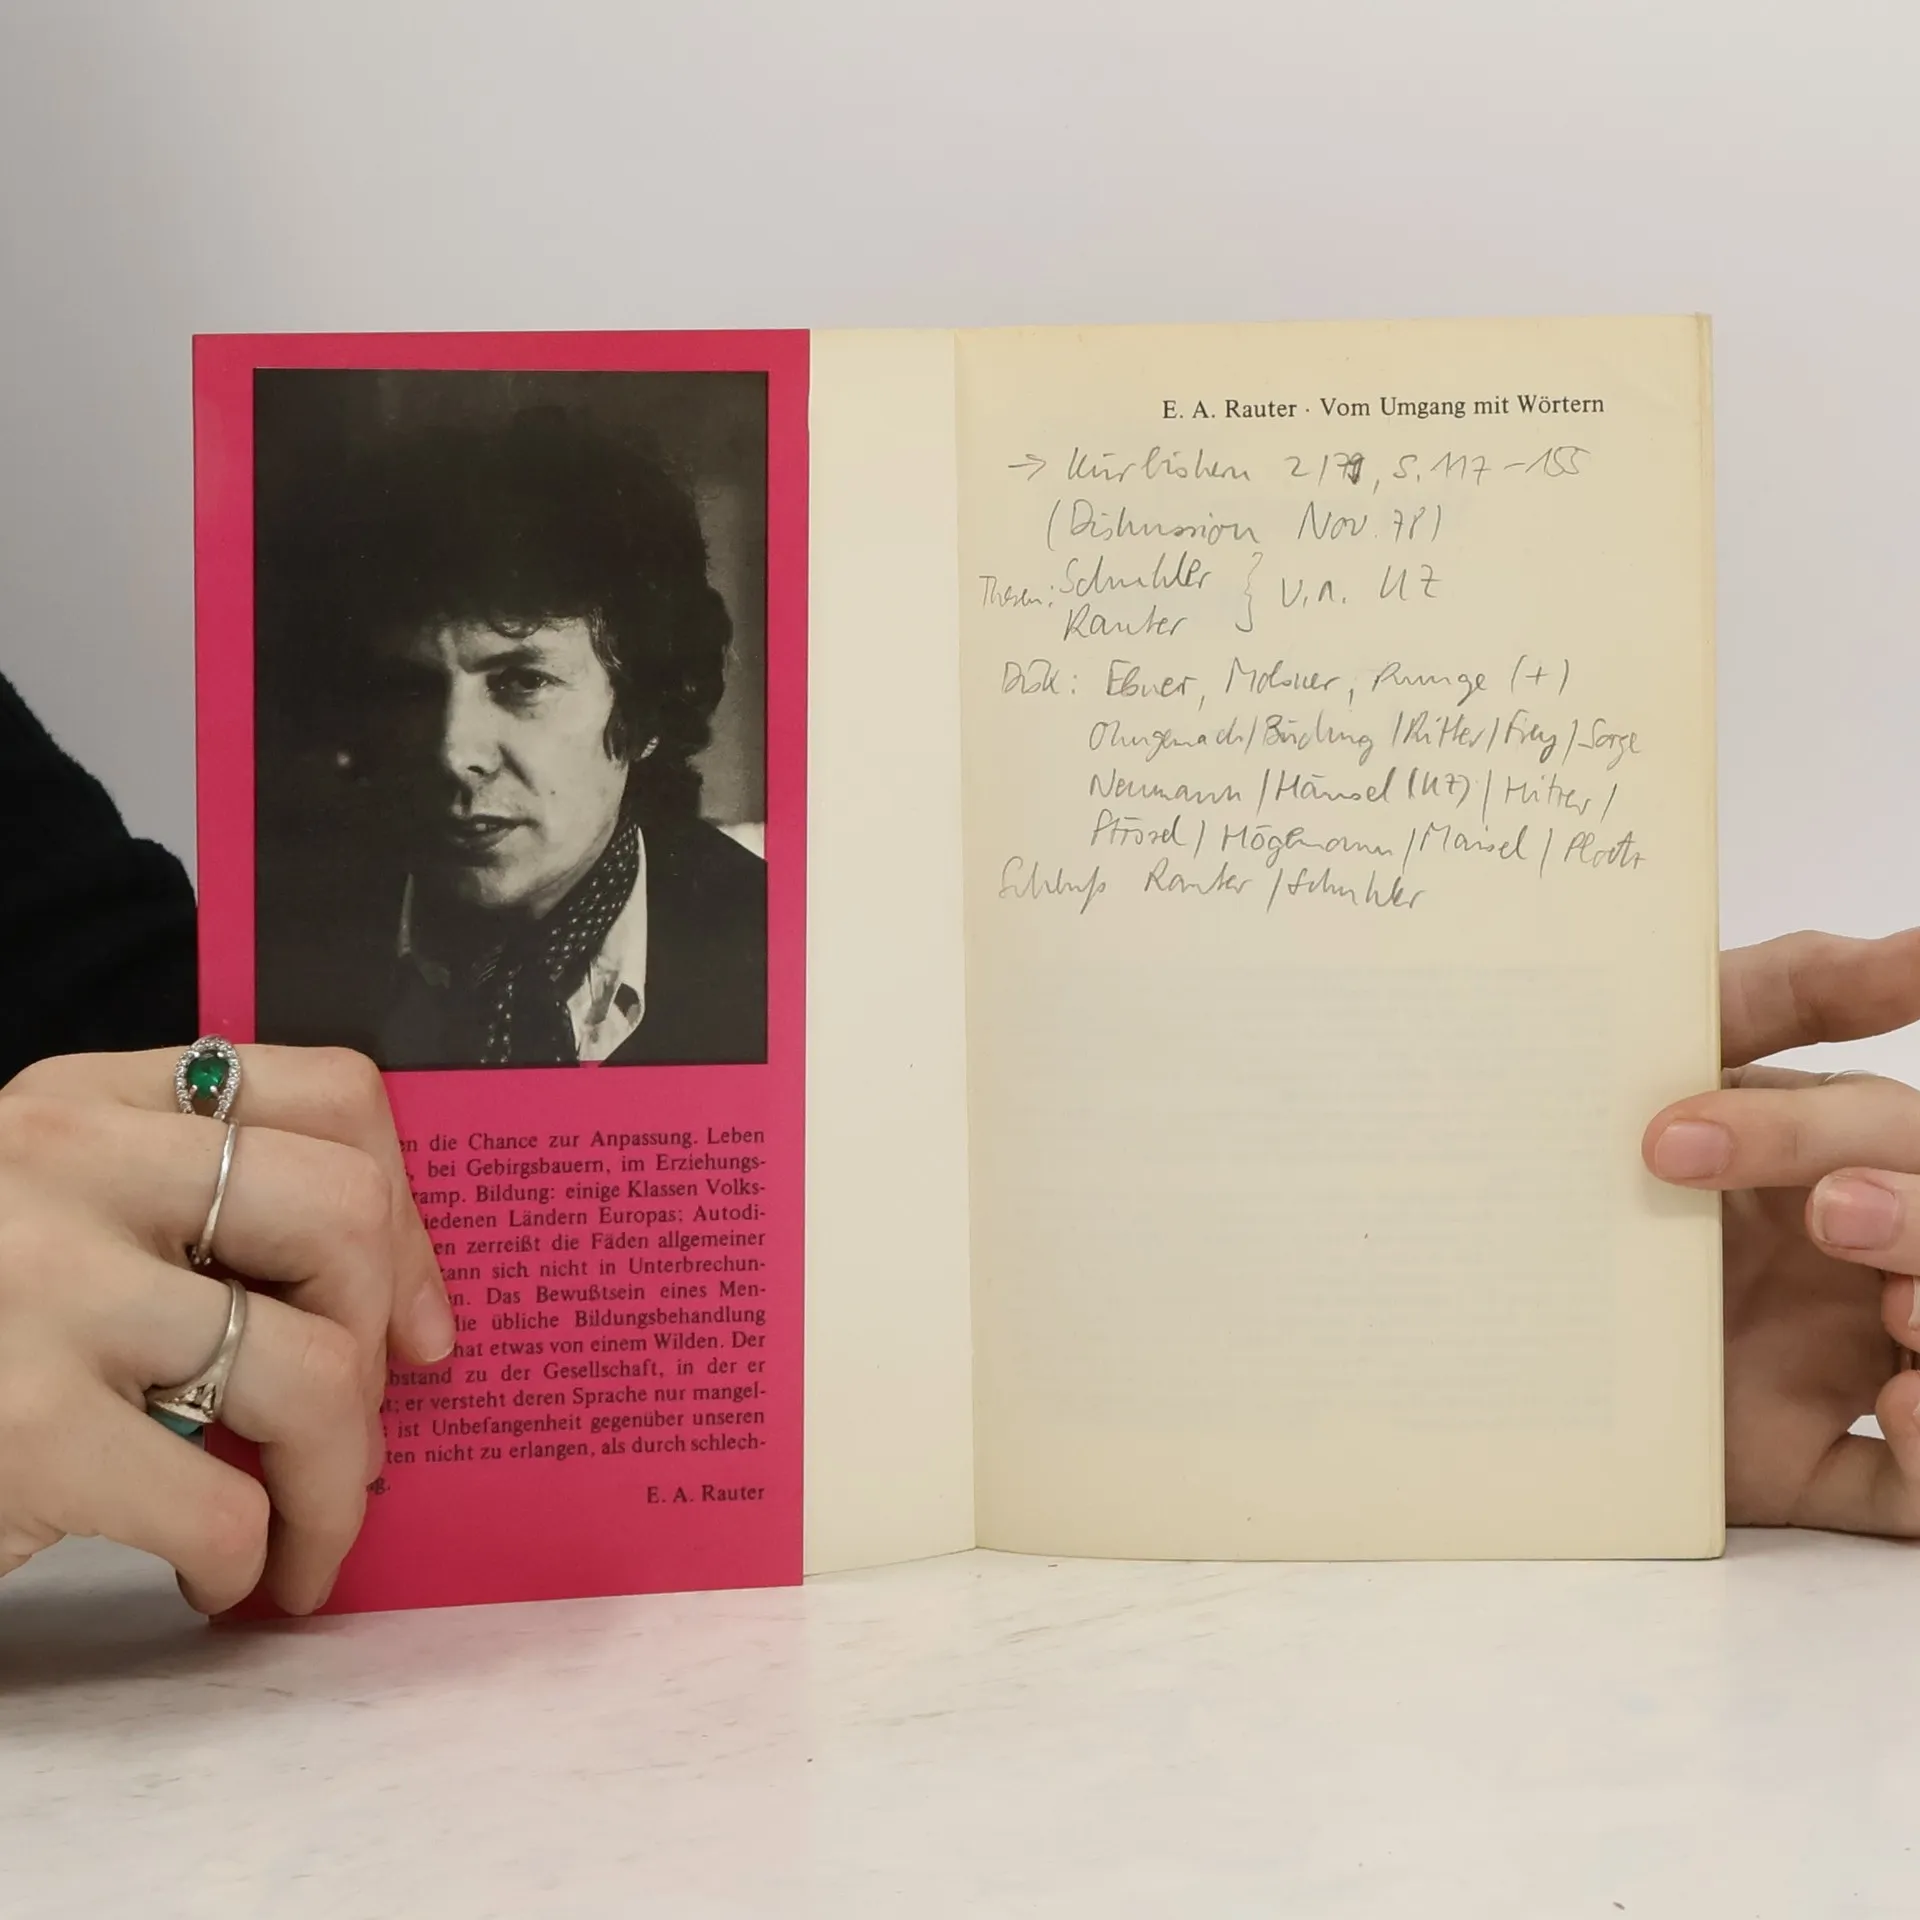 en die Chance zur Anpassung. Leben
, bei Gebirgsbauern, im Erziehungs-
amp. Bildung: einige Klassen Volks-
iedenen Ländern Europas: Autodi-
en zerreißt die Fäden allgemeiner
ann sich nicht in Unterbrechun-
n. Das Bewußtsein eines Men-
die übliche Bildungsbehandlung
hat etwas von einem Wilden. Der
bstand zu der Gesellschaft, in der er
t; er versteht deren Sprache nur mangel-
ist Unbefangenheit gegenüber unseren
ten nicht zu erlangen, als durch schlech-
g.
E. A. Rauter
E. A. Rauter · Vom Umgang mit Wörtern
→ Kürbiskern 2/79, S. 117–155
(Diskussion Nov. 78)
Thesen: Schuhler
Rauter } v.a. UZ
Disk: Ebner, Molsner, Runge (+)
Ohngemach/Büding/Ritter/Frey/Sorge
Neumann/Hänsel (UZ)/Hitzer/
Ströbel/Högemann/Maisel/
Schluß Rauter/Schuhler